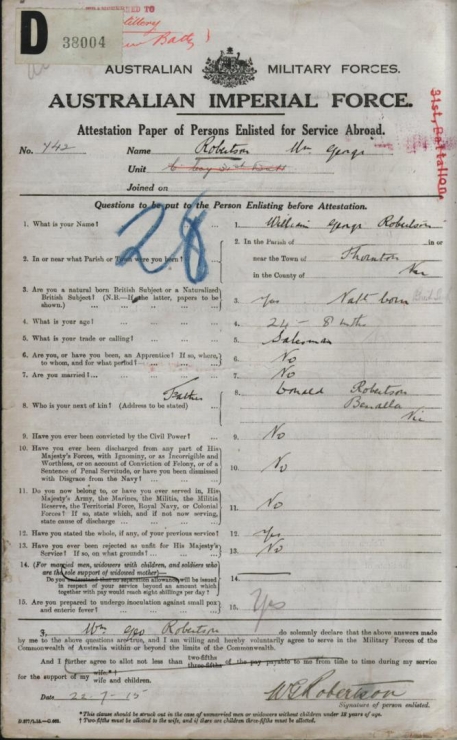 TRANSFERRED TO
Artillery
D 38004
AUSTRALIAN MILITARY FORCES.
AUSTRALIAN IMPERIAL FORCE.
Attestation Paper of Persons Enlisted for Service Abroad.
No. 742 Name Robertson Wm George
Unit
31st. Battalion.
Joined on
Questions to be put to the Person Enlisting before Attestation.
28
1. What is your Name? ... 1. William George Robertson
2. In or near what Parish or Town were you born? ... 2. In the Parish of in or
near the Town of Thornton
in the County of Vic
3. Are you a natural born British Subject or a Naturalized
British Subject? (N.B.—If the latter, papers to be
shown.) 3. Yes Natl born
4. What is your age? ... 4. 24 - 8 mths
5. What is your trade or calling? ... 5. Salesman
6. Are you, or have you been, an Apprentice? If so, where,
to whom, and for what period? ... 6. No
7. Are you married? ... 7. No
8. Who is your next of kin? (Address to be stated) Father 8. Donald Robertson
Benalla
Vic
9. Have you ever been convicted by the Civil Power? ... 9. No
10. Have you ever been discharged from any part of His
Majesty's Forces, with Ignominy, or as Incorrigible and
Worthless, or on account of Conviction of Felony, or of a
Sentence of Penal Servitude, or have you been dismissed
with Disgrace from the Navy? ... 10. No
11. Do you now belong to, or have you ever served in, His
Majesty's Army, the Marines, the Militia, the Militia
Reserve, the Territorial Force, Royal Navy, or Colonial
Forces? If so, state which, and if not now serving,
state cause of discharge ... 11. No
12. Have you stated the whole, if any, of your previous service? 12. Yes
13. Have you ever been rejected as unfit for His Majesty's
Service? If so, on what grounds? ... 13. No
14. (For married men, widowers with children, and soldiers who
are the sole support of widowed mother)—
Do you understand that no separation allowance will be issued
in respect of your service beyond an amount which
together with pay would reach eight shillings per day? 14.
15. Are you prepared to undergo inoculation against small pox
and enteric fever? 15. Yes
I, Wm Geo Robertson do solemnly declare that the above answers made
by me to the above questions are true, and I am willing and hereby voluntarily agree to serve in the Military Forces of the
Commonwealth of Australia within or beyond the limits of the Commonwealth.
And I further agree to allot not less than two-fifths three-fifths of the pay payable to me from time to time during my service
for the support of my wife.*†
wife and children.
Date 22-7-15 W G Robertson
Signature of person enlisted.
*This clause should be struck out in the case of unmarried men or widowers without children under 18 years of age.
† Two-fifths must be allotted to the wife, and if there are children three-fifths must be allotted.